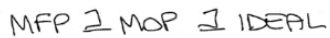 MFP 1 MOP 1 IDEAL